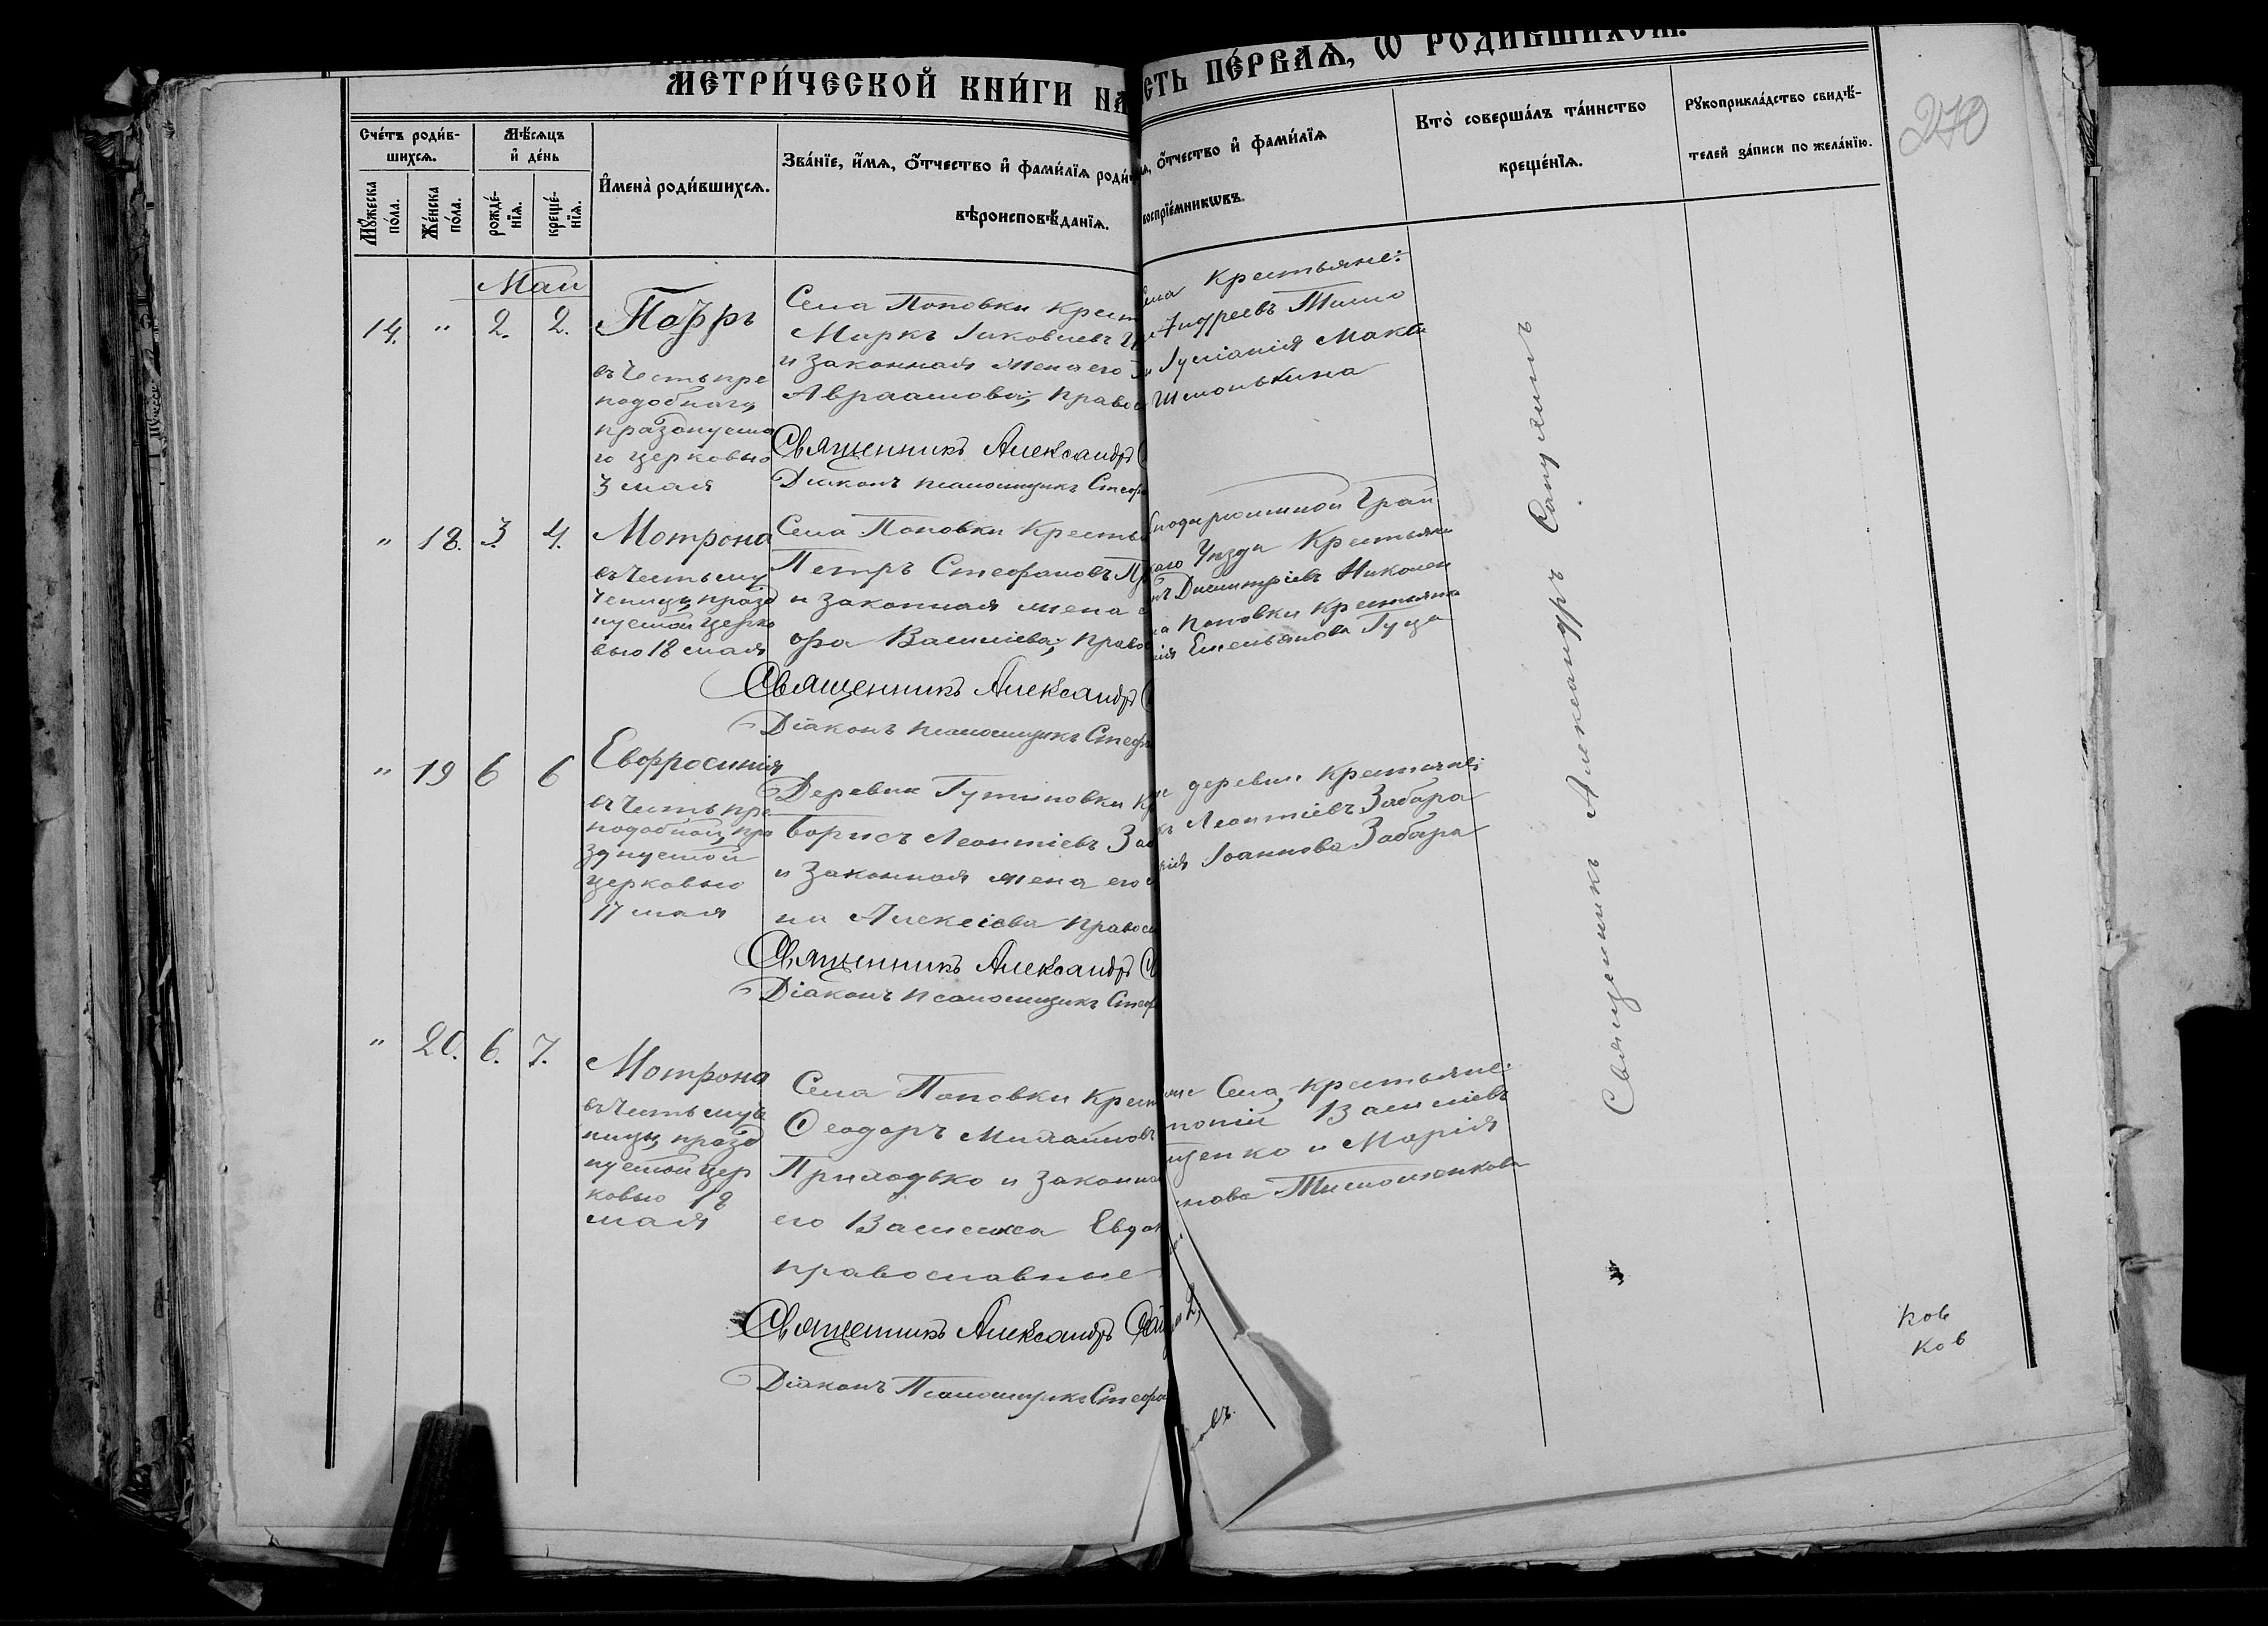 МЕТРИ́ЧЕСКОЙ КНИ́ГИ ЧА
СТЬ ПЕ́РВАЯ, Ѡ РОДИ́ВШИХСЯ.
270
Сче́тъ роди́в-
шихся.
Мѣ́сяцъ
и҆ де́нь
Мꙋ́жеска
по́ла.
Же́нска
по́ла.
рожде́-
нїя.
креще́-
нїя.
И҆мена̀ роди́вшихся.
Зва́нїе, и҆́мя, ѻ҆́тчество и҆ фами́лїя роди́
вѣроисповѣ́данїя.
ѻ҆́тчество и҆ фами́лїя
воспрїе́мникѡвъ.
Кто̀ соверша́лъ та́инство
креще́нїя.
Рꙋкоприкла́дство свидѣ́-
телей за́писи по жела́нїю.
Май
14. " 2. 2.
въ честь пре
подобнаго,
празднуема
го церковію
3 мая
Села Поповки Крест
Маркъ Іаковлевъ
и законная жена его
Авраамова, правос
Священникъ Александръ
Діаконъ псаломщикъ Стеф
села крестьяне:
Андреевъ Тимо
Іуліанія Макси
Шмонькина
" 18. 3. 4.
Мотрона
въ честь му
ченицы, празд
нуемой церко
вью 18 мая
Села Поповки Кресть
Петръ Стефановъ
и законная жена
фа Василіева, право
Священникъ Александръ
Діаконъ псаломщикъ Стеф
каго Уѣзда Крестьянин
Димитріевъ Николаен
на Поповки крестьянка
Емельянова Гуца
" 19 6 6
Евфросинія
въ честь пре
подобной, пра
зднуемой
церковью
17 мая
Деревни Гутиновки Кр
Борисъ Леонтіевъ Заб
и законная жена его
на Алексіева правосл
Священникъ Александръ
Діаконъ псаломщикъ Стеф
деревни крестьяне:
Леонтіевъ Забара
Іоаннова Забара
" 20. 6. 7.
Мотрона
въ честь муче
ницы, празд
нуемой цер
ковью 18
мая
Села Поповки Крест
Ѳеодоръ Михайловъ
Приходько и законна
его Василиса Евдок
православные
Священникъ Александръ Сап
Діаконъ Псаломщикъ Стефа
Села, крестьяне:
Василіевъ
щенко и Марія
нова Тимошенкова
Священникъ Александръ
ков
ков